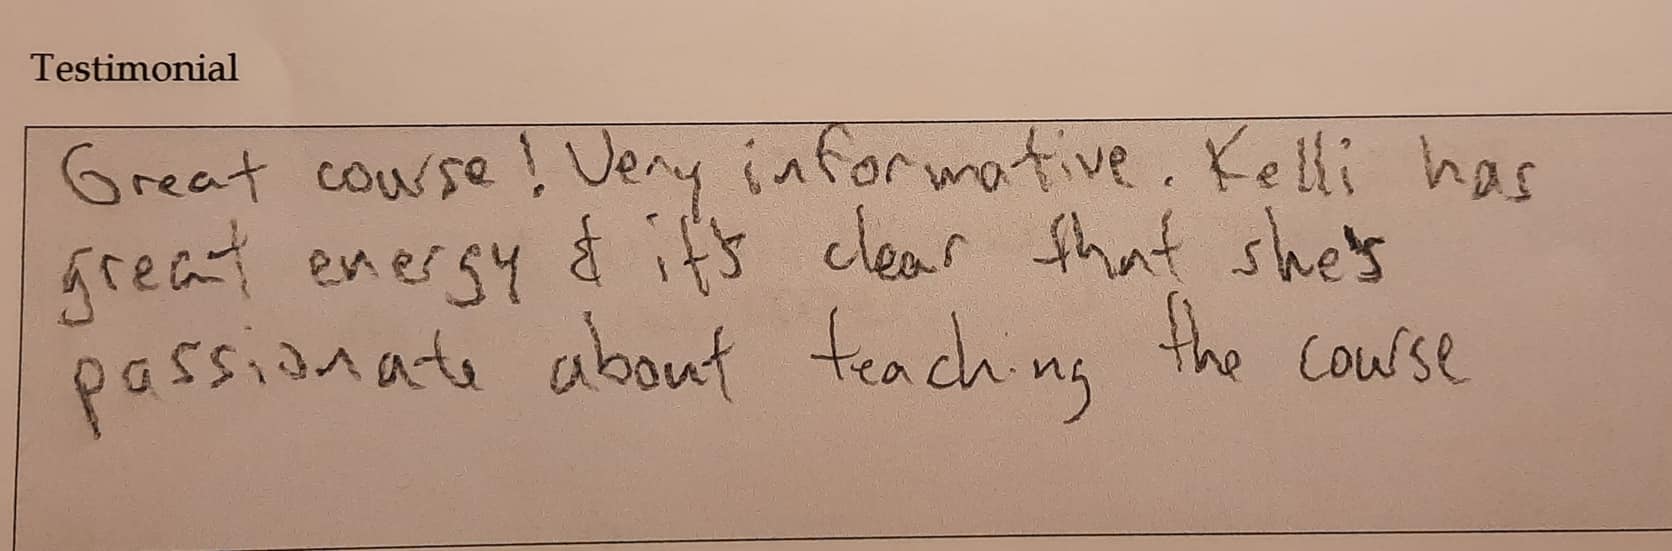 Testimonial
Great course! Very informative. Kelli has
great energy & it's clear that she's
passionate about teaching the course